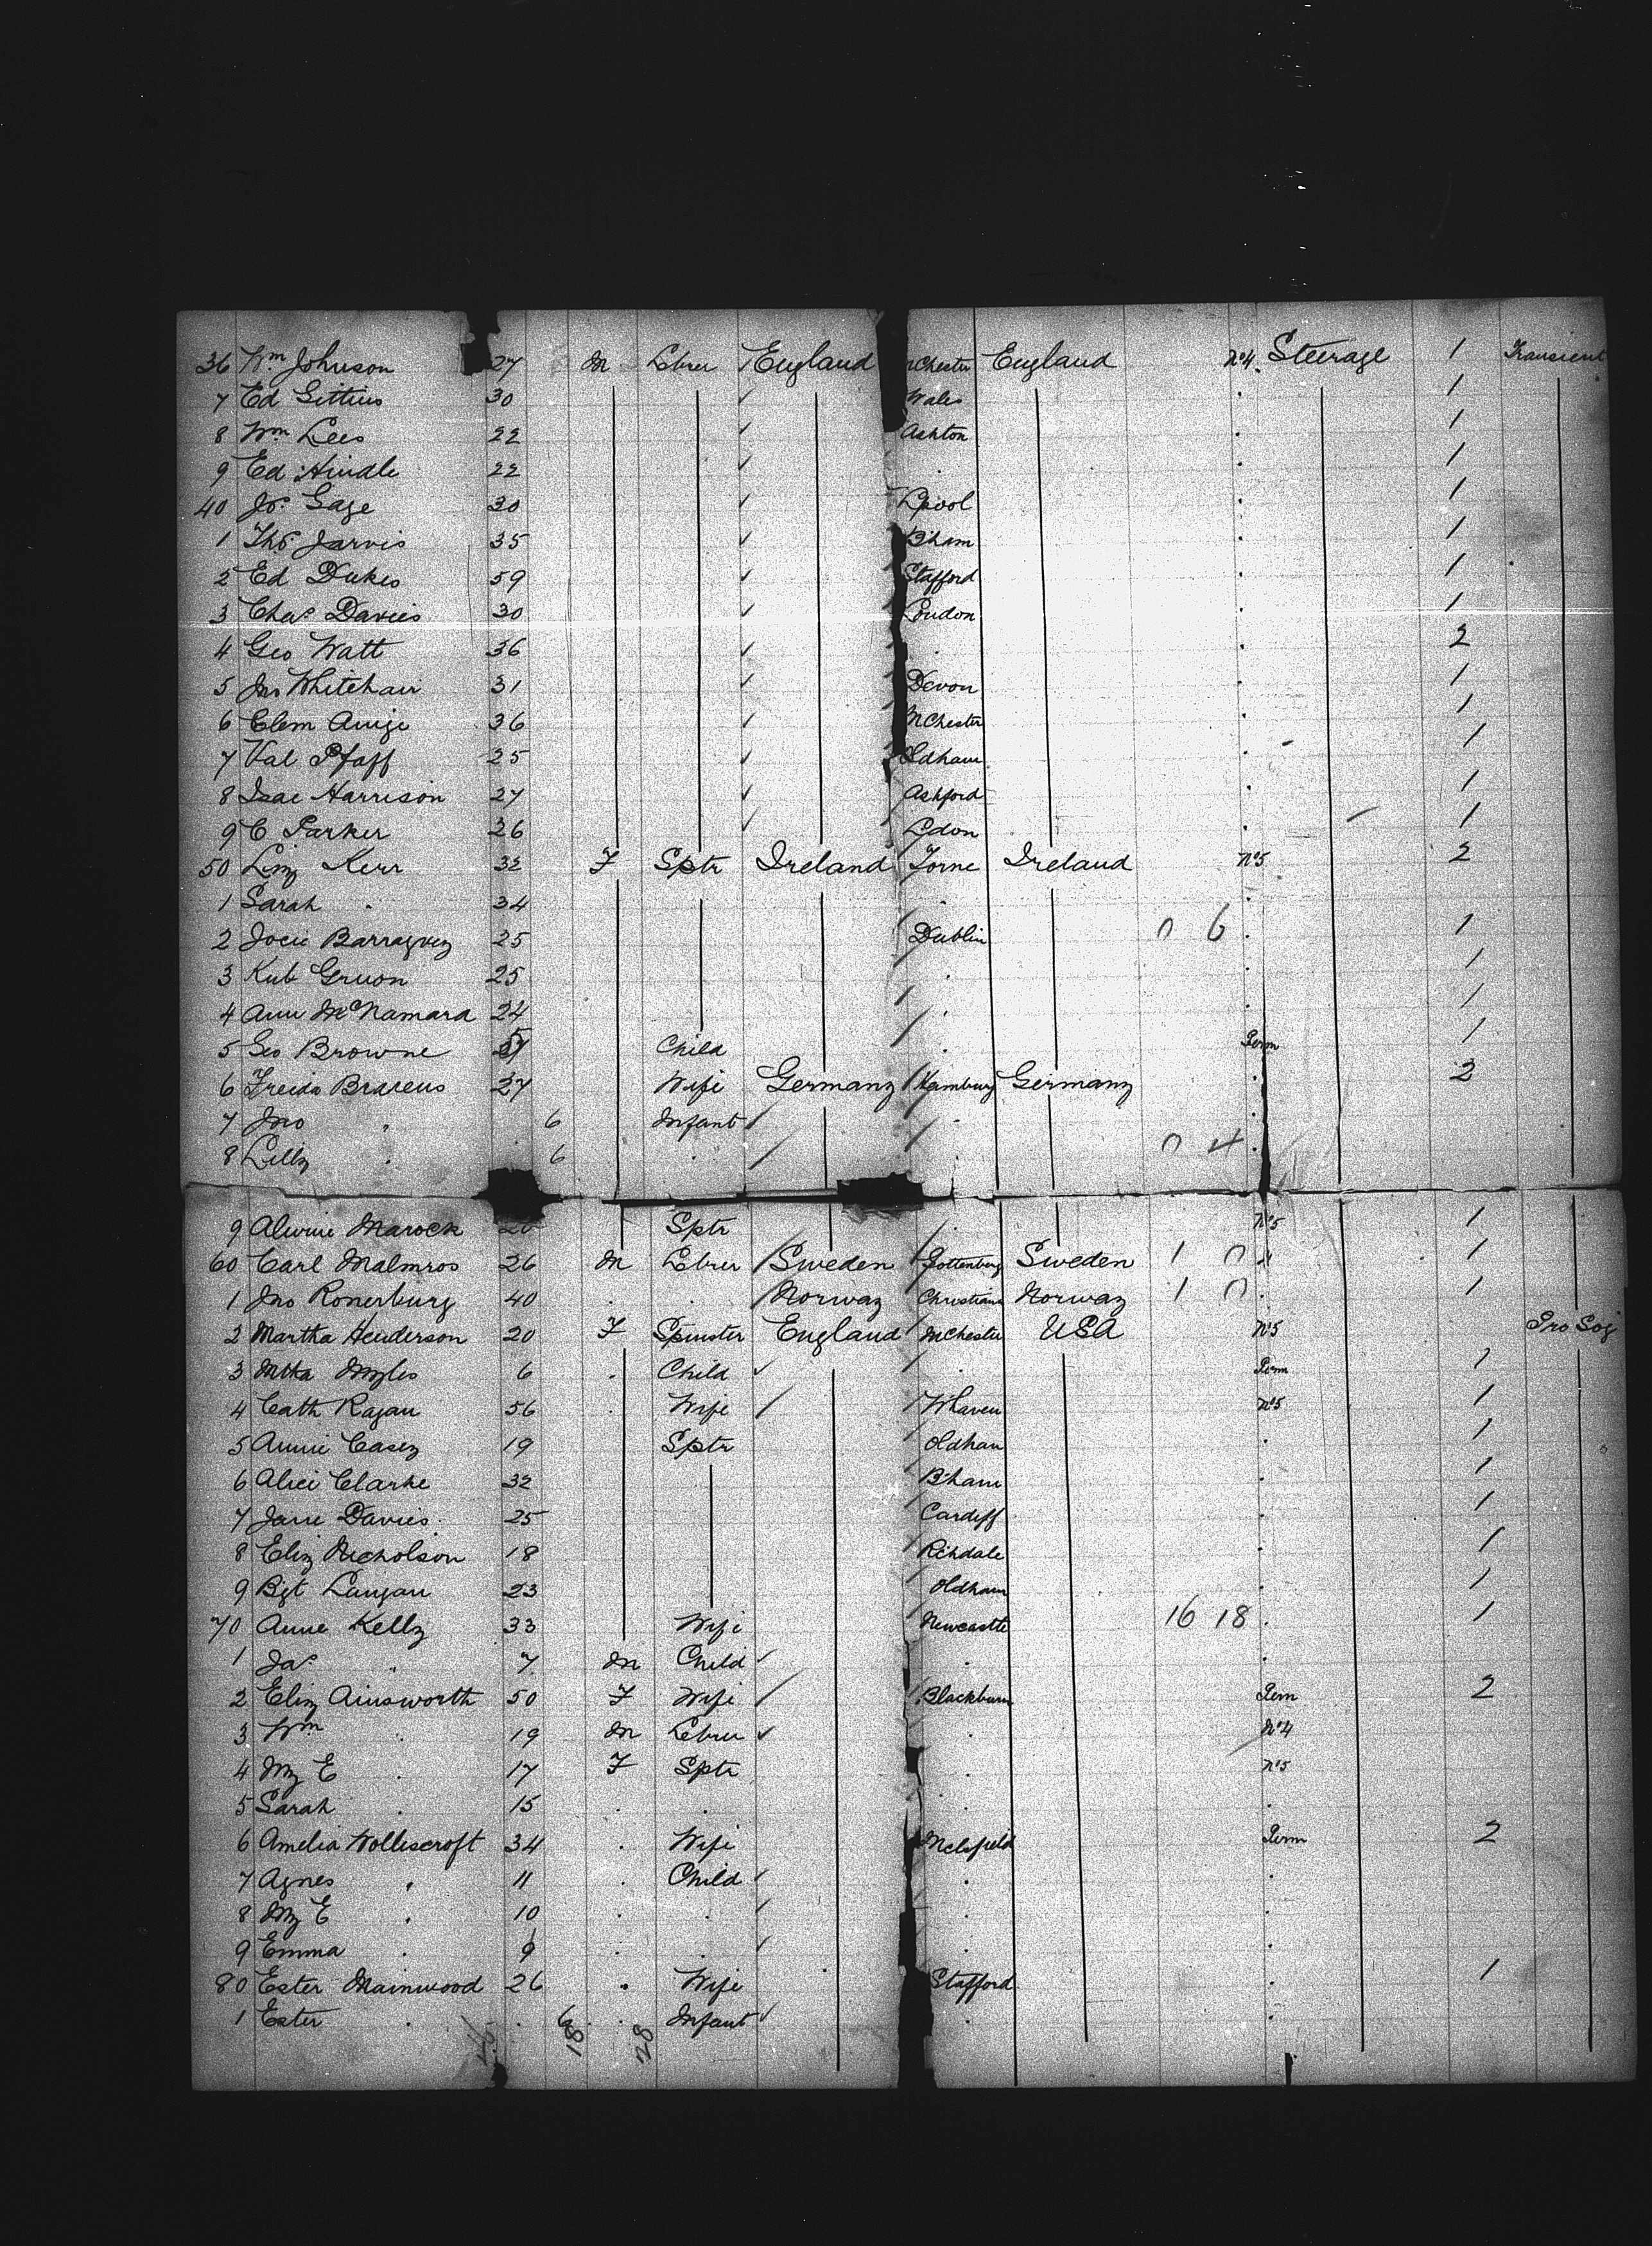 36 Wm Johnson 27 M Lbrer England MChester England No4. Steerage 1 Transient
7 Ed Gittins 30 Wales 1
8 Wm Lees 22 Ashton 1
9 Ed Hindle 22 . 1
40 Jos. Gage 30 Lpool 1
1 Thos Jarvis 35 Bham 1
2 Ed Dukes 59 Stafford 1
3 Chas Davies 30 London 1
4 Geo Watt 36 . 2
5 Jno Whitehair 31 Devon 1
6 Clem 36 MChester 1
7 Val Pfaff 25 Oldham 1
8 Isac Harrison 27 Ashford 1
9 C Parker 26 Ldon 1
50 Liz Kerr 32 F Sptr Ireland Ireland No5 2
1 Sarah " 34 .
2 Barragrey 25 Dublin 0 6 . 1
3 Gruon 25 . 1
4 Ann McNamara 24 . 1
5 Geo Browne Child . Perm 1
6 Freida Bravens 27 Wife Germany Hamburg Germany 2
7 Jno " 6 Infant
8 Lilly " 6 . 0 4 .
9 Alwine Marock Sptr . No5 1
60 Carl Malmros 26 M Lbrer Sweden Gottenburg Sweden 1 0 4 1
1 Jno Ronerburg 40 . . Norway Christiana Norway 1 0 . 1
2 Martha Henderson 20 F Spinster England MChester USA No5 Pro Soj
3 Mtha Myles 6 . Child . Perm 1
4 Cath Ragan 56 . Wife Whaven No5 1
5 Annie Casey 19 Sptr Oldham . 1
6 Alice Clarke 32 B'ham . 1
7 Jane Davies 25 Cardiff . 1
8 Eliz Nicholson 18 Rchdale . 1
9 Bgt Langan 23 Oldham . 1
70 Anne Kelly 33 Wife Newcastle 16 18 . 1
1 Jas " 7 M Child . .
2 Eliz Ainsworth 50 F Wife Blackburn Perm 2
3 Wm " 19 M Lebrer . No4
4 My E " 17 F Sptr . No5
5 Sarah " 15 . . . .
6 Amelia Wolliscroft 34 . Wife Mclsfield Perm 2
7 Agnes " 11 . Child . .
8 My E " 10 . . . .
9 Emma " 9 . . . .
80 Ester Mainwood 26 . Wife Stafford . 1
1 Ester " . 6 . Infant .
18 28